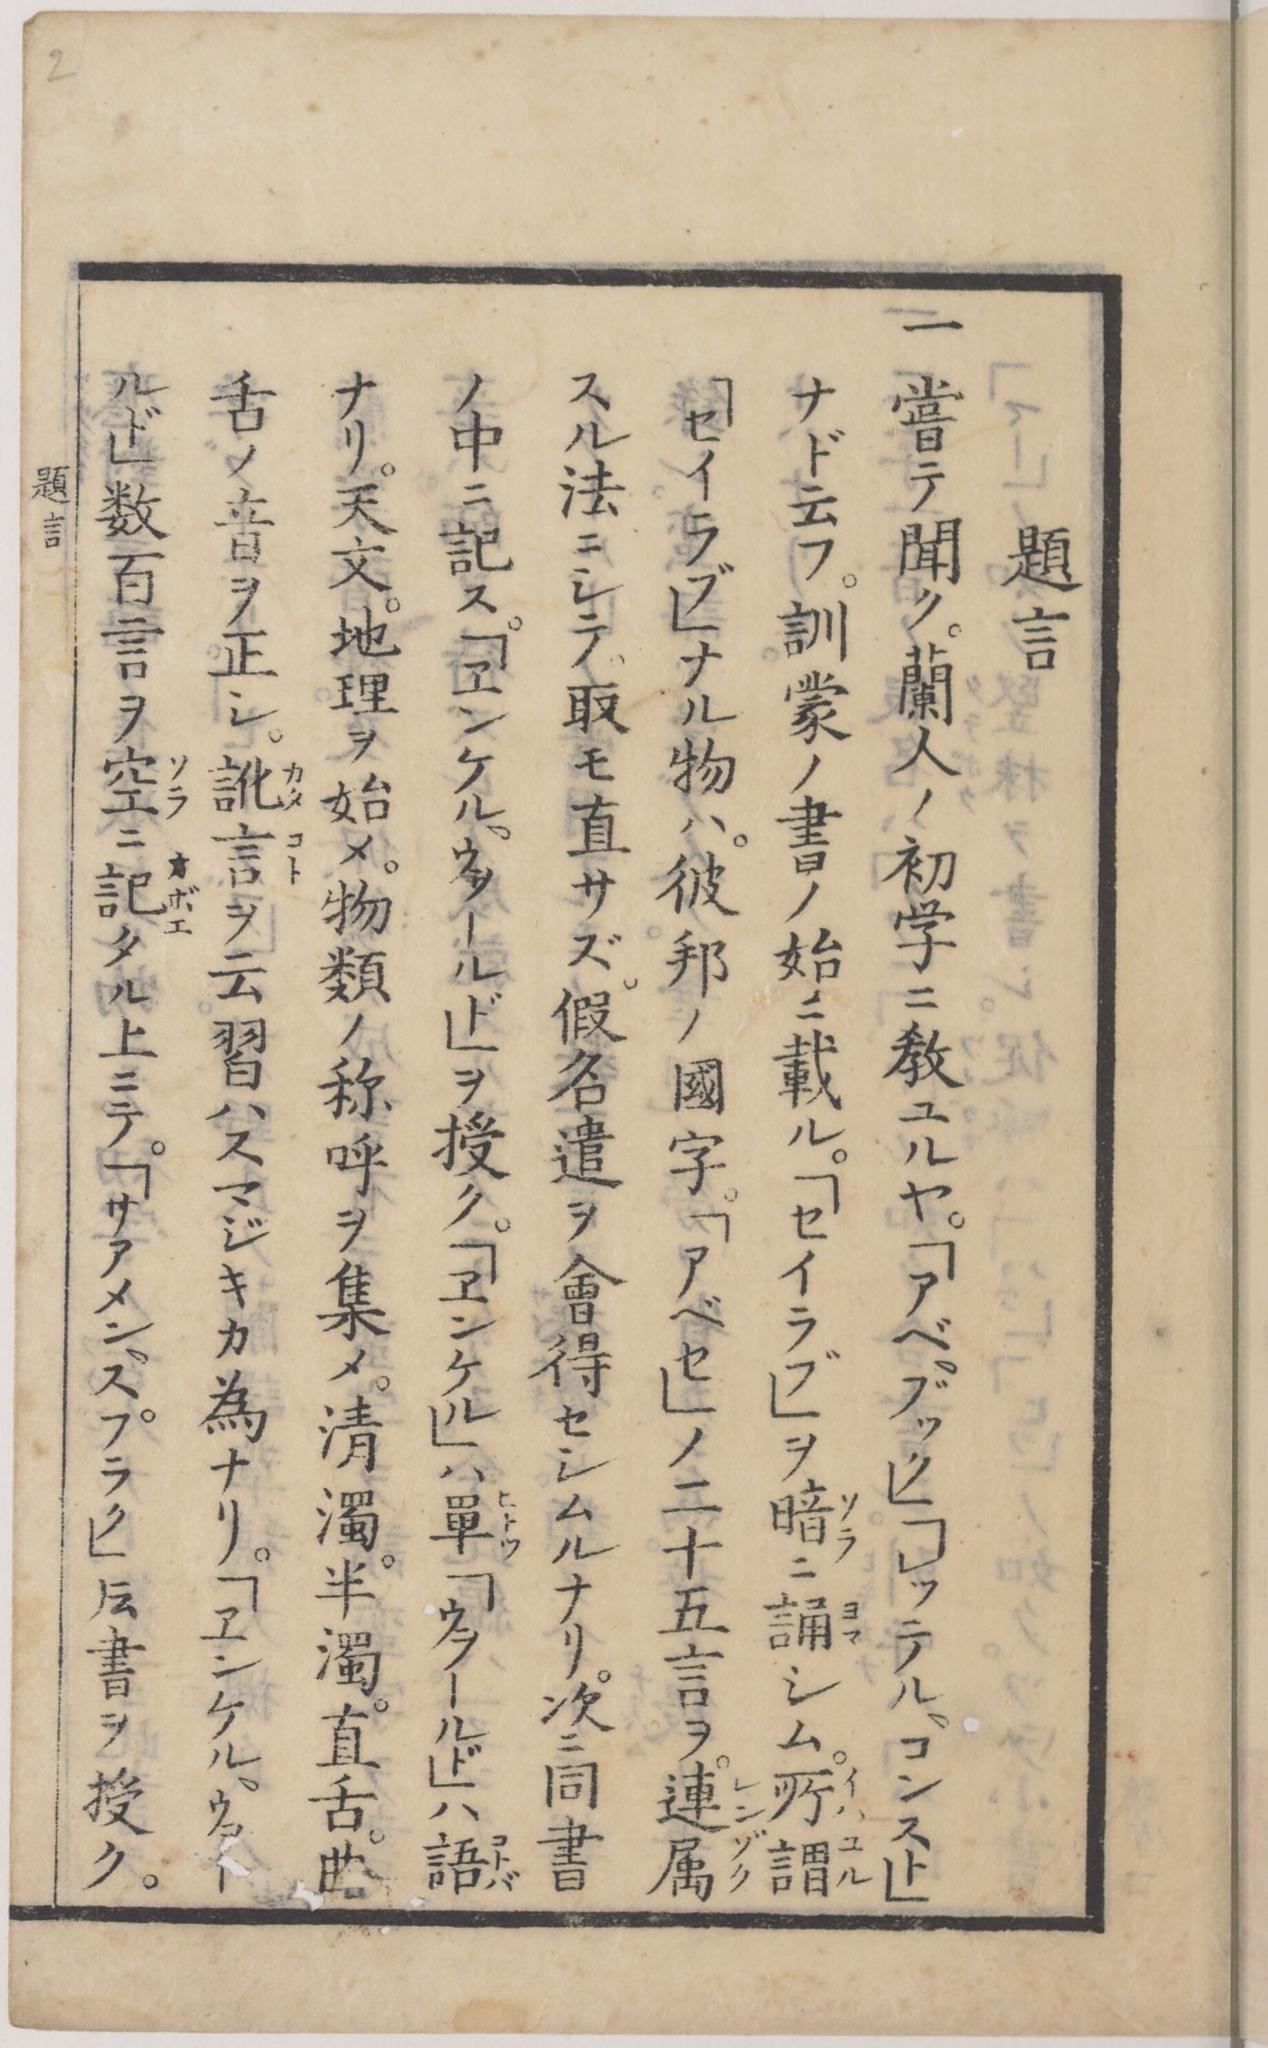 題言
一 嘗テ聞ク。蘭人ノ初学ニ教ユルヤ。「アベ、ブック」「レッテル、コンスト」
ナド云フ。訓蒙ノ書ノ始ニ載ル。「セイラブ」ヲ暗ニ誦シム。所謂
「セイラブ」ナル物ハ。彼邦ノ國字。「アベセ」ノ二十五言ヲ。連属
スル法ニシテ、取モ直サズ。假名遣ヲ會得セシムルナリ。次ニ同書
ノ中ニ記ス。「ヱンケル、ウヲールド」ヲ授ク。「ヱンケル」ハ單「ウヲールド」ハ語
ナリ。天文。地理ヲ始メ。物類ノ称呼ヲ集メ。清濁。半濁。直舌。曲
舌ノ音ヲ正シ。訛言ヲ云習ハスマジキカ為ナリ。「ヱンケル、ウヲー
ルド」数百言ヲ空ニ記タル上ニテ。「サアメン、スプラク」ト云書ヲ授ク。
題言
ソラ
ヨマ
イハユル
レンゾク
ヒトツ
コトバ
カタコト
ソラ
オボエ
2